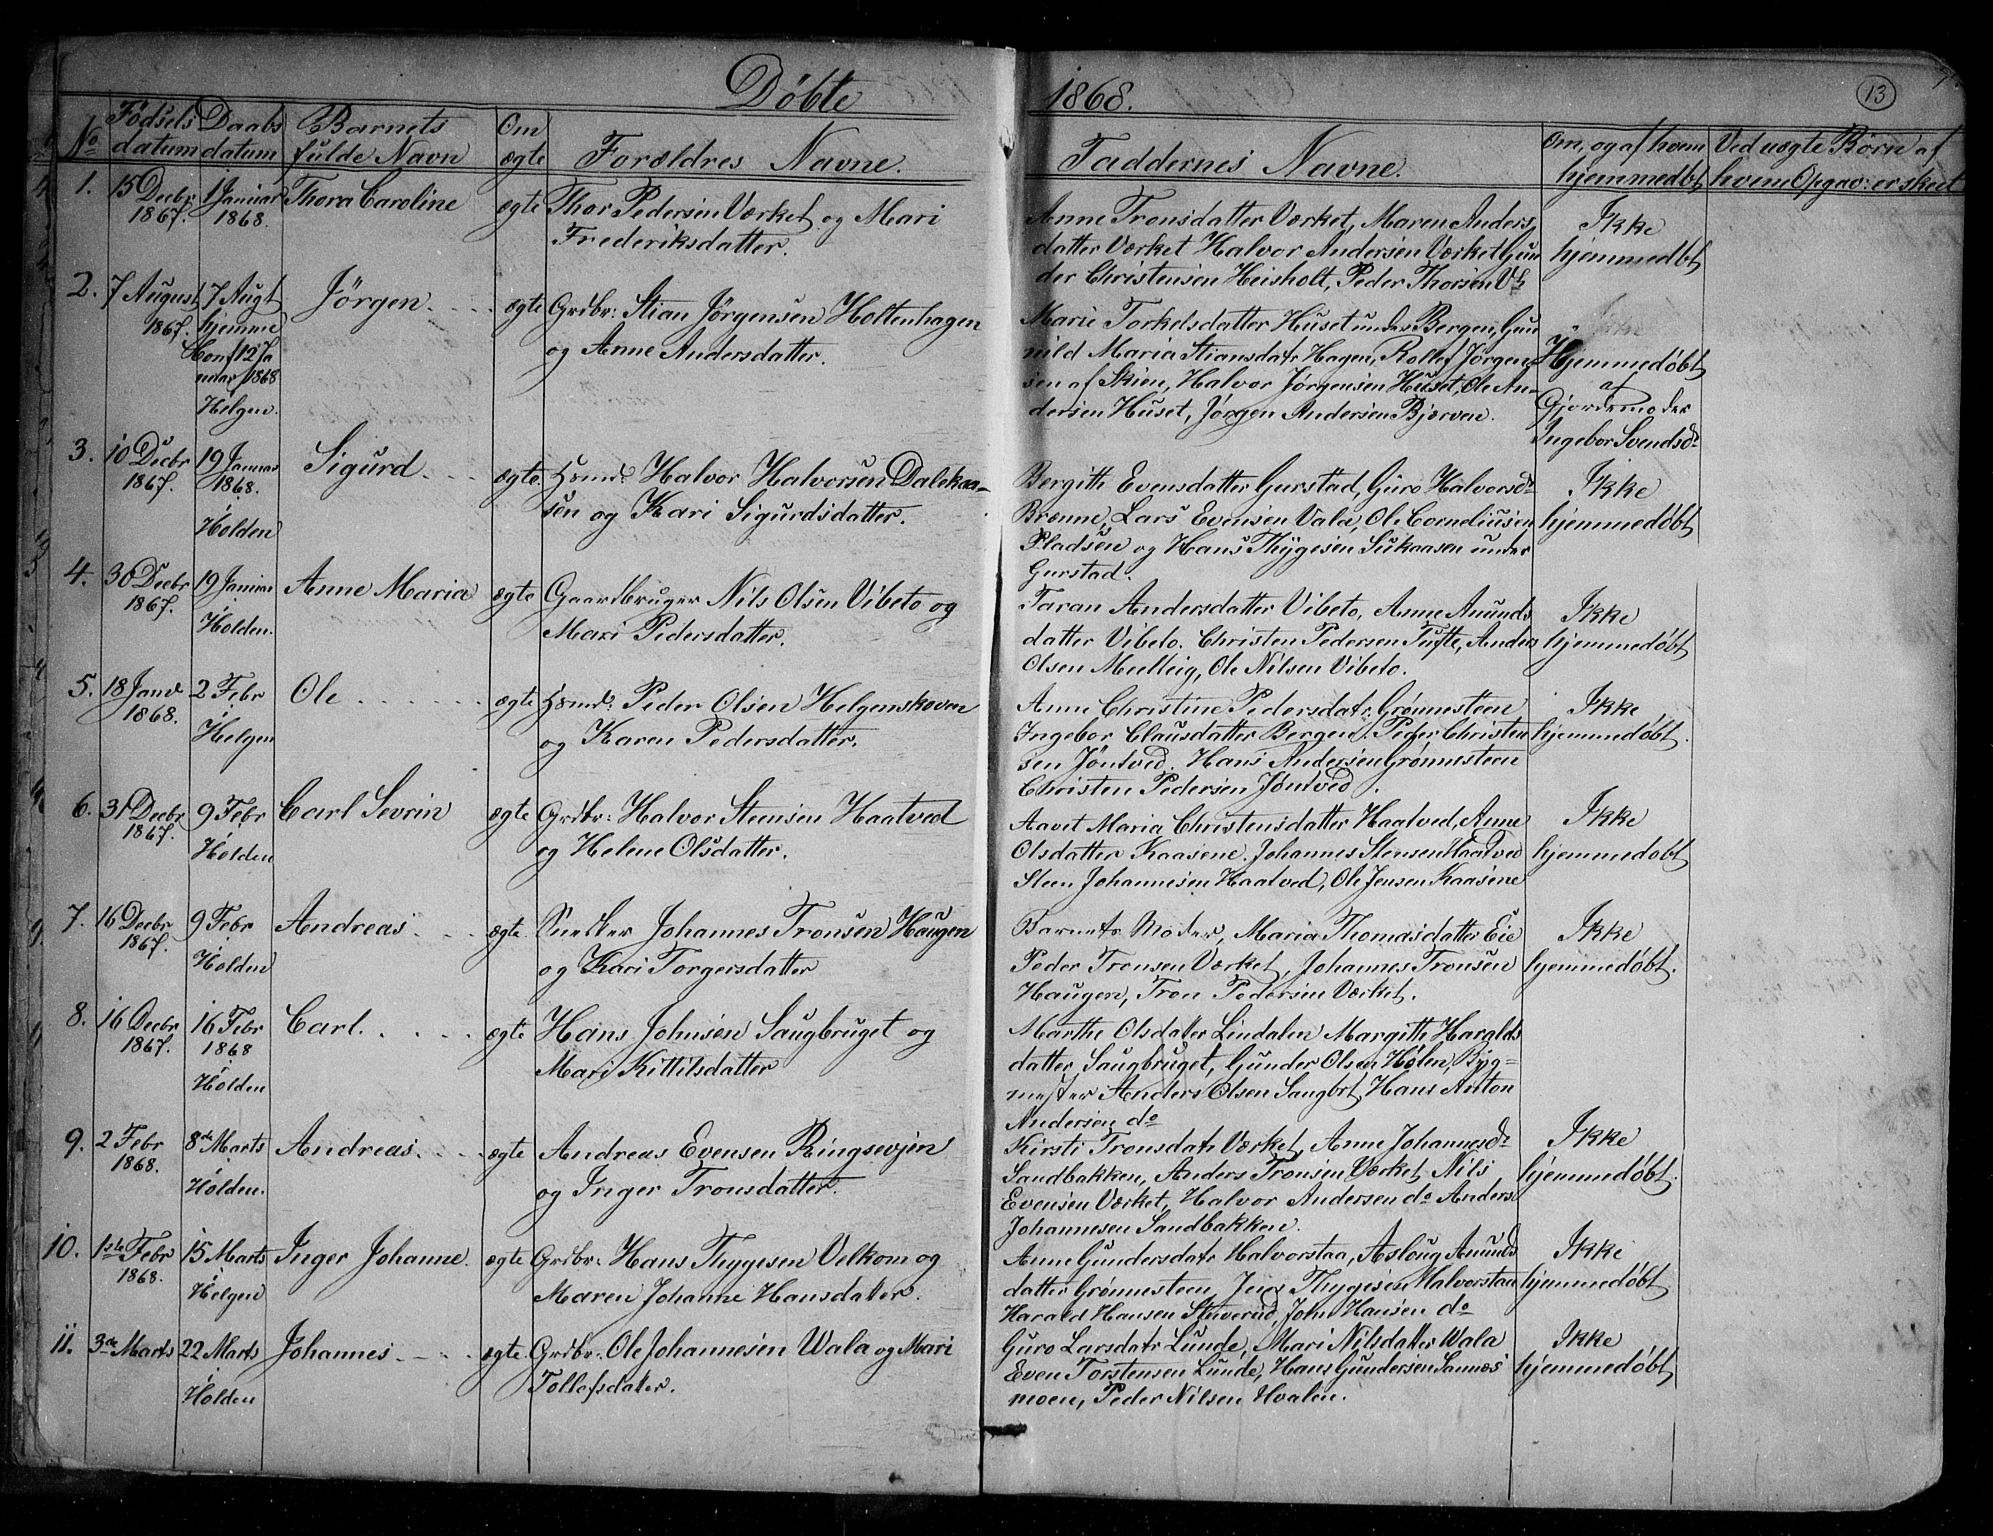 Døbte 1868. 13
No Fødsels datum Daabs datum Barnets fulde Navn Om ægte Forældres Navne. Faddernes Navne. Om, og af hvem hjemmedbt Ved uægte Børn af hvem Opgav: er skeet
1. 15 Decbr 1867. 1 Januar 1868. Thora Caroline ægte Thor Pedersen Værket og Mari
Frederiksdatter.
Anne Tronsdatter Værket, Maren Anders
datter Værket Halvor Andersen Værket Gun
der Christensen Heisholt, Peder Thorsen V.
Ikke
hjemmedbt
2. 7 August 1867. 7 Augt hjemme Conf 12 Ja
nuar 1868
Helgen.
Jørgen ægte Grdbr: Stian Jørgensen Holtenhagen
og Anne Andersdatter.
Marie Torkelsdatter Huset under Bergen, Gun
nild Maria Stiansdatr Hagen, Rollef Jørgen
sen af Skien, Halvor Jørgensen Huset, Ole An
dersen Huset, Jørgen Andersen Bjerven.
Hjemmedøbt
af
Gjordemoder
Ingebor Svendsd
3. 10 Decbr 1867. 19 Januar 1868.
Holden
Sigurd ægte Hsmd: Halvor Halvorsen Dalekaa-
sen og Kari Sigurdsdatter.
Bergith Evensdatter Gurstad, Guro Halvorsdr
Brenne, Lars Evensen Vala, Ole Corneliusen
Pladsen og Hans Thygesen Sukaasen under
Gurstad.
Ikke
hjemmedøbt
4. 30 Decbr 1867. 19 Januar
i
Holden.
Anne Maria ægte Gaardbruger Nils Olsen Vibeto og
Mari Pedersdatter.
Taran Andersdatter Vibeto, Anne Anunds
datter Vibeto. Christen Pedersen Tufte, Anders
Olsen Mielteig, Ole Nilsen Vibeto.
Ikke
hjemmedøbt
5. 18 Janr 1868. 2 Febr
i
Helgen
Ole ægte Hsmd: Peder Olsen Helgenskoven
og Karen Pedersdatter.
Anne Christine Pedersdatr Grønnesteen
Ingebor Clausdatter Bergen, Peder Christen
sen Jøntved. Hans Andersen Grønnesteen
Christen Pedersen Jøntved.
Ikke
hjemmedøbt.
6. 31 Decbr 1867. 9 Febr
i
Holden
Carl Sevrin ægte Grdbr: Halvor Steensen Haatved
og Helene Olsdatter.
Aavet Maria Christensdatter Haatved, Anne
Olsdatter Kaasene. Johannes Stensen Haatved
Steen Johannesen Haatved, Ole Jensen Kaasene
Ikke
hjemmedøbt
7. 16 Decbr 1867. 9 Febr
i
Holden
Andreas ægte. Snedker Johannes Tronsen Haugen
og Kari Torgersdatter
Barnets Moder, Maria Thomasdatter Eie
Peder Tronsen Værket, Johannes Tronsen
Haugen, Tron Pedersen Værket.
Ikke
hjemmedøbt.
8. 16 Decbr 1867. 16 Febr
1868
i
Holden
Carl. ægte Hans Johnsen Saugbruget og
Mari Kittilsdatter
Marthe Olsdatter Lindalen Margith Haralds
datter Saugbruget, Gunder Olsen Holen, Byg-
mester Anders Olsen Saugbrt, Hans Anton
Andersen do
9. 2 Febr 1868. 8de Marts
i
Holden.
Andreas. ægte Andreas Evensen Ringsevjen
og Inger Tronsdatter.
Kirsti Tronsdatr Værket, Anne Johannesdr
Sandbakken, Anders Tronsen Værket, Nils
Evensen Værket, Halvor Andersen do Anders
Johannesen Sandbakken.
Ikke
hjemmedøbt.
10. 1ste Febr 1868. 15 Marts
i
Helgen
Inger Johanne. ægte Grdbr: Hans Thygesen Velkom og
Maren Johanne Hansdatter.
Anne Gundersdatr Halvorstaa, Asloug Anunds
datter Grønnesteen, Jens Thygesen Halvorstaa
Harald Hansen Stuverud, John Hansen do
Ikke
hjemmedøbt
11. 3de Marts 22 Marts
i
Holden
Johannes ægte Grdbr: Ole Johannesen Wala og Mari
Tollefsdatter.
Guro Larsdatr Lunde, Mari Nilsdatter Wala
Even Torstensen Lunde, Hans Gundersen Sannæs
moen, Peder Nilsen Hvalen.
Ikke
hjemmedøbt